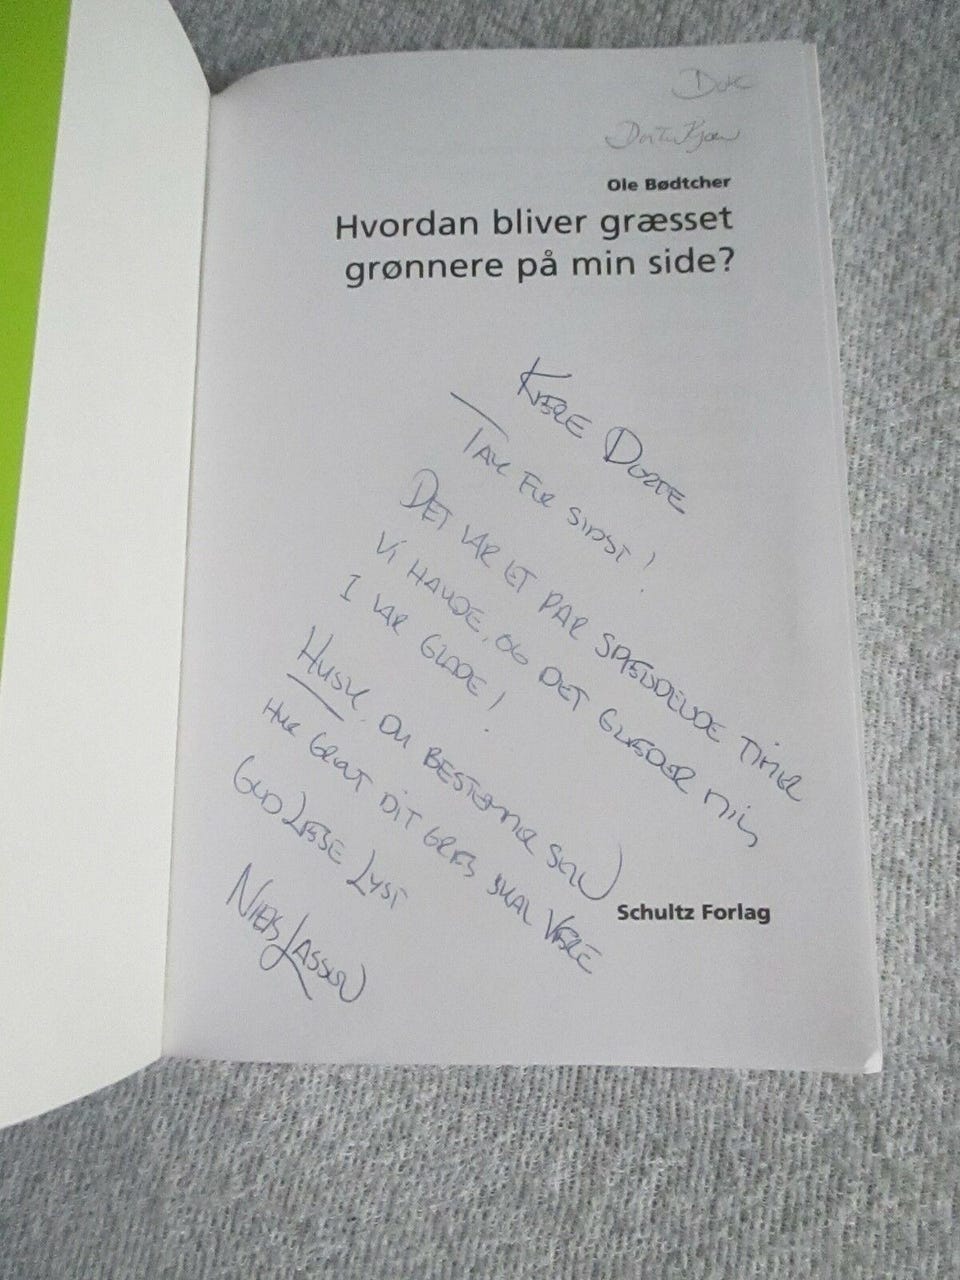 Ole Bødtcher
Hvordan bliver græsset
grønnere på min side?
KÆRE DORTE
TAK FOR SIDST!
DET VAR ET PAR SPÆNDENDE TIMER
VI HAVDE, OG DET GLÆDER MIG
I VAR GLADE!
HUSK, DU BESTEMMER SELV
HVOR GRØNT DIT GRÆS SKAL VÆRE
GOD LÆSE LYST
NIELS LASSEN
Schultz Forlag